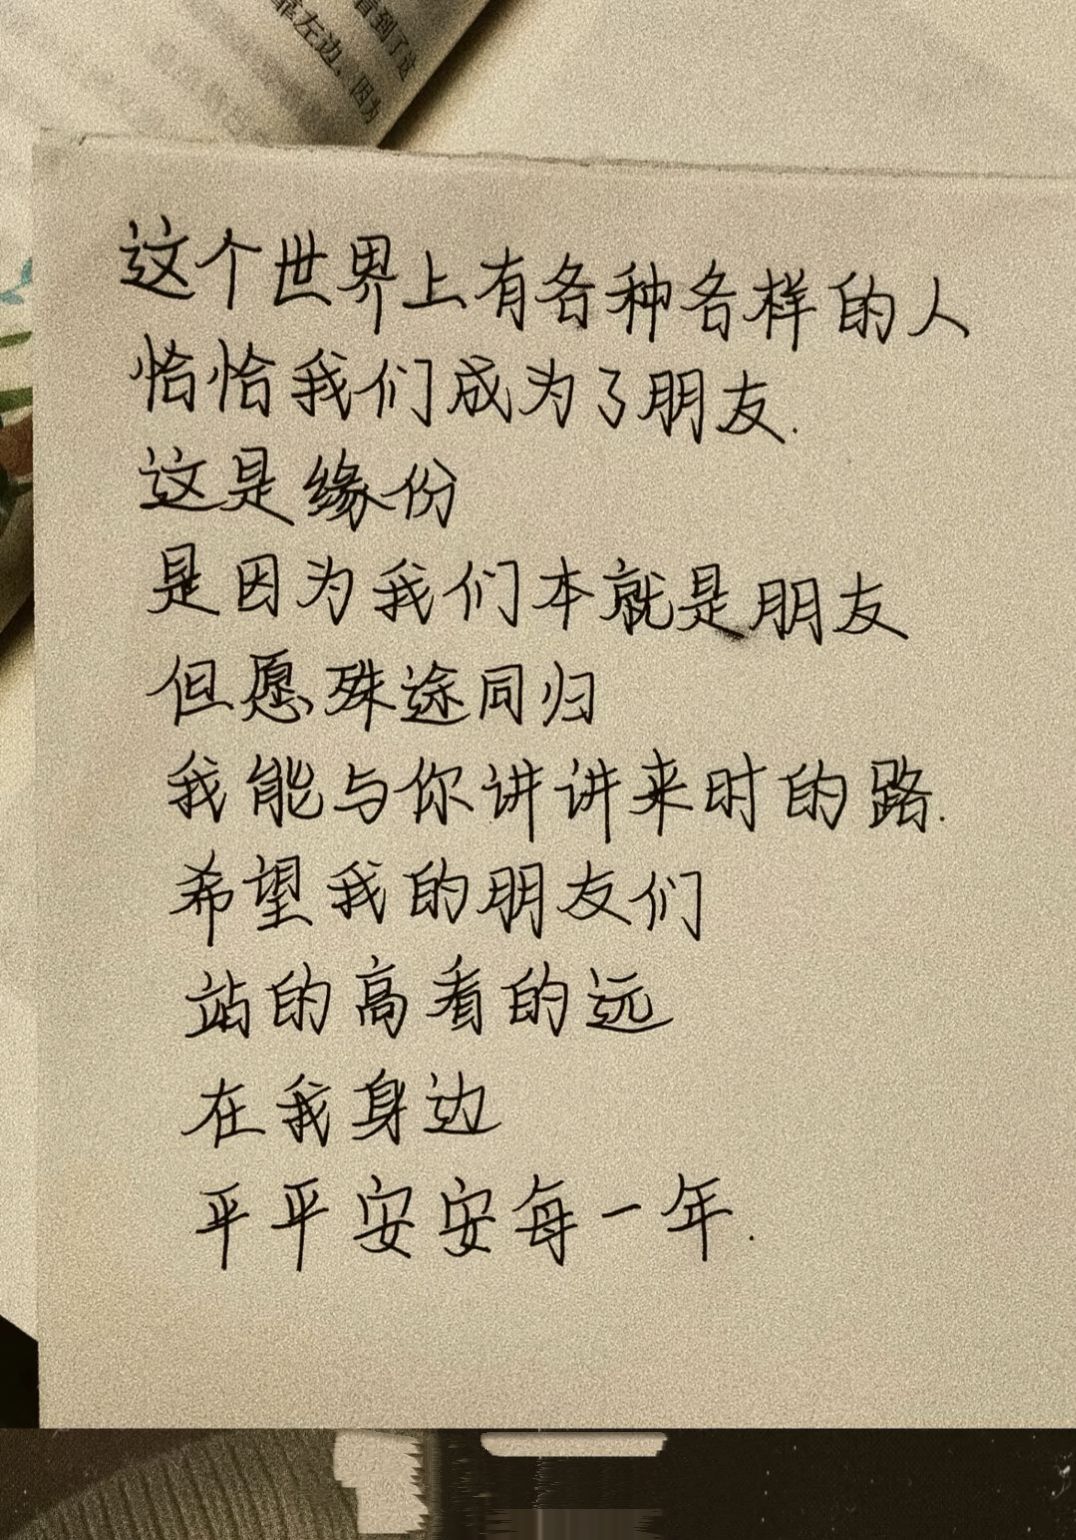 看到了这
靠左边，因为
这个世界上有各种各样的人
恰恰我们成为了朋友.
这是缘份
是因为我们本就是朋友
但愿殊途同归
我能与你讲讲来时的路.
希望我的朋友们
站的高看的远
在我身边
平平安安每一年.